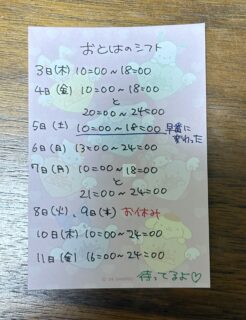 おとはのシフト
3日(木) 10:00〜18:00
4日(金) 10:00〜18:00
と
20:00〜24:00
5日(土) 10:00〜18:00 早番に
変わった
6日(日) 13:00〜24:00
7日(月) 10:00〜18:00
と
21:00〜24:00
8日(火)、9日(水) お休み
10日(木) 10:00〜24:00
11日(金) 16:00〜24:00
待ってるよ♡